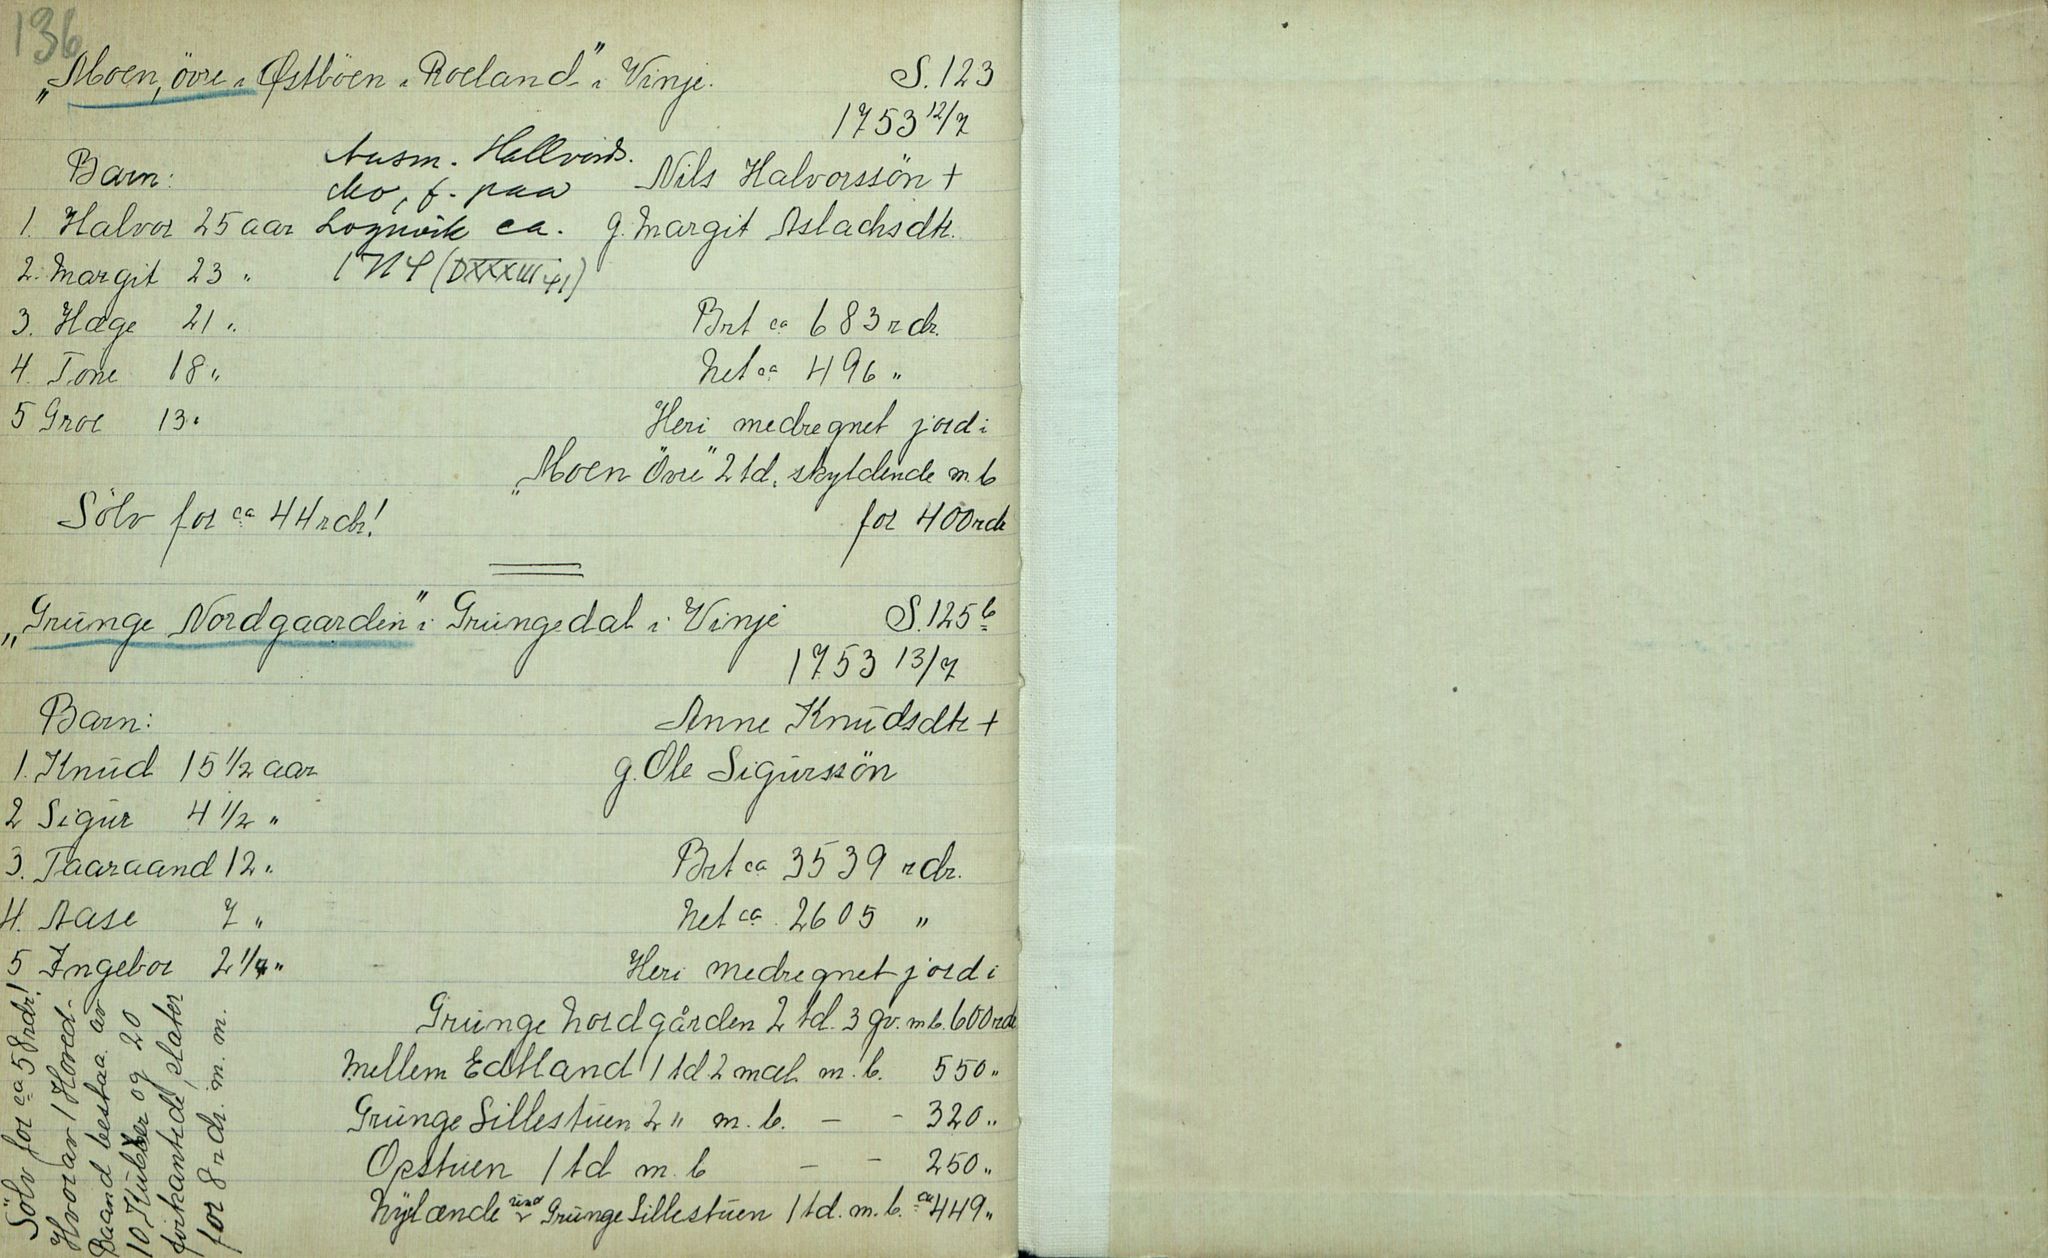 136
„Moen, övre i Østböen i Roeland” i Vinje. S. 123
1753 12/7
Barn:
Aasm. Hallvords.
Mo, f. paa
Lognvik ca.
(DXXXIII 41)
Nils Halvorssön +
g. Margit Aslachsdtr.
1. Halvor 25 aar
2. Margit 23 „
3. Hæge 21 „
4. Tone 18 „
5 Groe 13 „
Brt ca 683 rdr.
Net ca 496 „
Heri medregnet jord i
„Moen Övre” 2 td. skyldende m. b
for 400 rdr
Sölv for ca 44 rdr!
„Grunge Nordgaarden” i Grungedal i Vinje S. 125 b
1753 13/7
Barn:
Anne Knudsdtr +
g. Ole Sigurssön
1. Knud 15 1/2 aar
2 Sigur 4 1/2 „
3. Taaraand 12 „
4. Aase 7 „
5 Ingebor 2 1/4 „
Brt ca 3539 rdr.
Net ca 2605 „
Heri medregnet jord i
Grunge Nordgården 2 td. 3 gv. m b. 600 rdr
Mellem Edtland 1 td 2 mæl. m. b. 550 „
Grunge Sillestuen 2 „ m. b. — - 320 „
Opstuen 1 td m. b — - 250 „
Nylænde und Grunge Sillestuen 1 td. m. b. ca 449 „
Sölv for ca 58 rdr!
Hvorav 1 Hoved-
Baand bestaa. av
10 Kubber og 20
firkantede slater
for 8 rdr. m. m.